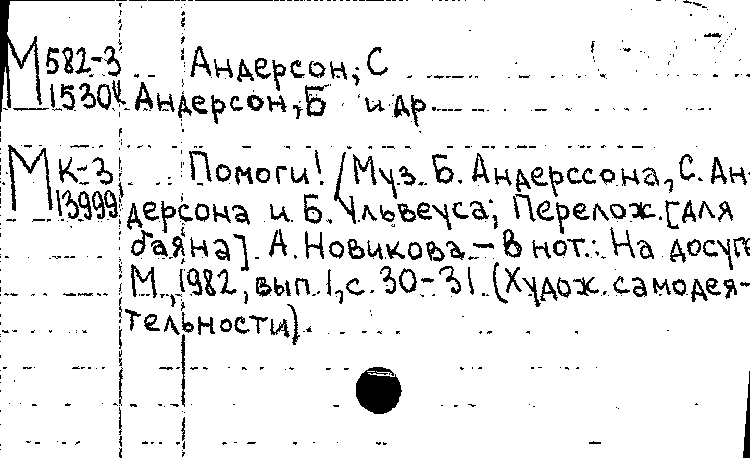 М 582-3 Андерсон, С
15304 Андерсон, Б и др.
М К-3 Помоги! /Муз. Б. Андерссона, С. Ан-
13999 дерсона и Б. Ульвеуса; Перелож. [для
баяна]. А. Новикова. – В нот.: На досуге
М., 1982, вып. 1, с. 30-31. (Худож. самодея-
тельности).